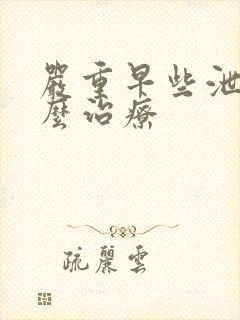 嚴重早些泄
麼治療
疏麗雲